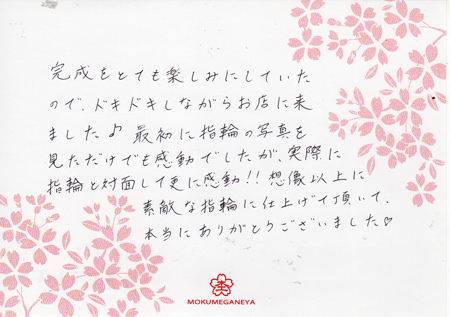 完成をとても楽しみにしていた
ので、ドキドキしながらお店に来
ました♪ 最初に指輪の写真を
見ただけでも感動でしたが、実際に
指輪と対面して更に感動!! 想像以上に
素敵な指輪に仕上げて頂いて、
本当にありがとうございました♡
MOKUMEGANEYA